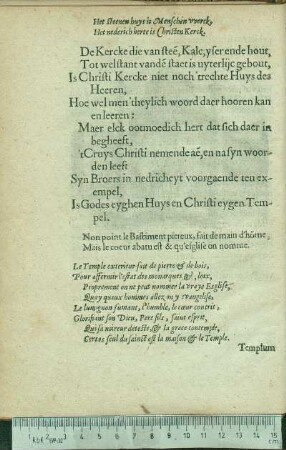 Het steenen huys is Menschen werck,
Het nederich herte is Christen Kerck.
De Kercke die van steē, Kalc, yser ende hout,
Tot welstant vandē staet is uyterlijc gebout,
Is Christi Kercke niet noch 'trechte Huys des
Heeren,
Hoe wel men 'theylich woord daer hooren kan
en leeren:
Maer elck ootmoedich hert dat sich daer in
begheeft,
'tCruys Christi nemende aē, en na syn woor-
den leeft
Syn Broers in nedricheyt voorgaende ten ex-
empel,
Is Godes eyghen Huys en Christi eygen Tem-
pel.
Non point le Bastiment piereux, fait de main d'hōme,
Mais le coeur abatu est & qu'eglise on nomme.
Le Temple exterieur fait de pierre & de bois,
Pour affermir l'estat du
Proprement on ne peut nommer la vraye Esglise,
Quoy qu'aux hommes allez on y evangelise,
Le lumignon fumant, l'humble, le cœur contrit,
Glorifiant son Dieu, Pere, fils, saint esprit,
Qui sa noirceur deteste, & la grace contemple,
Cercas seul du sainct est la maison & le Temple.
Templum